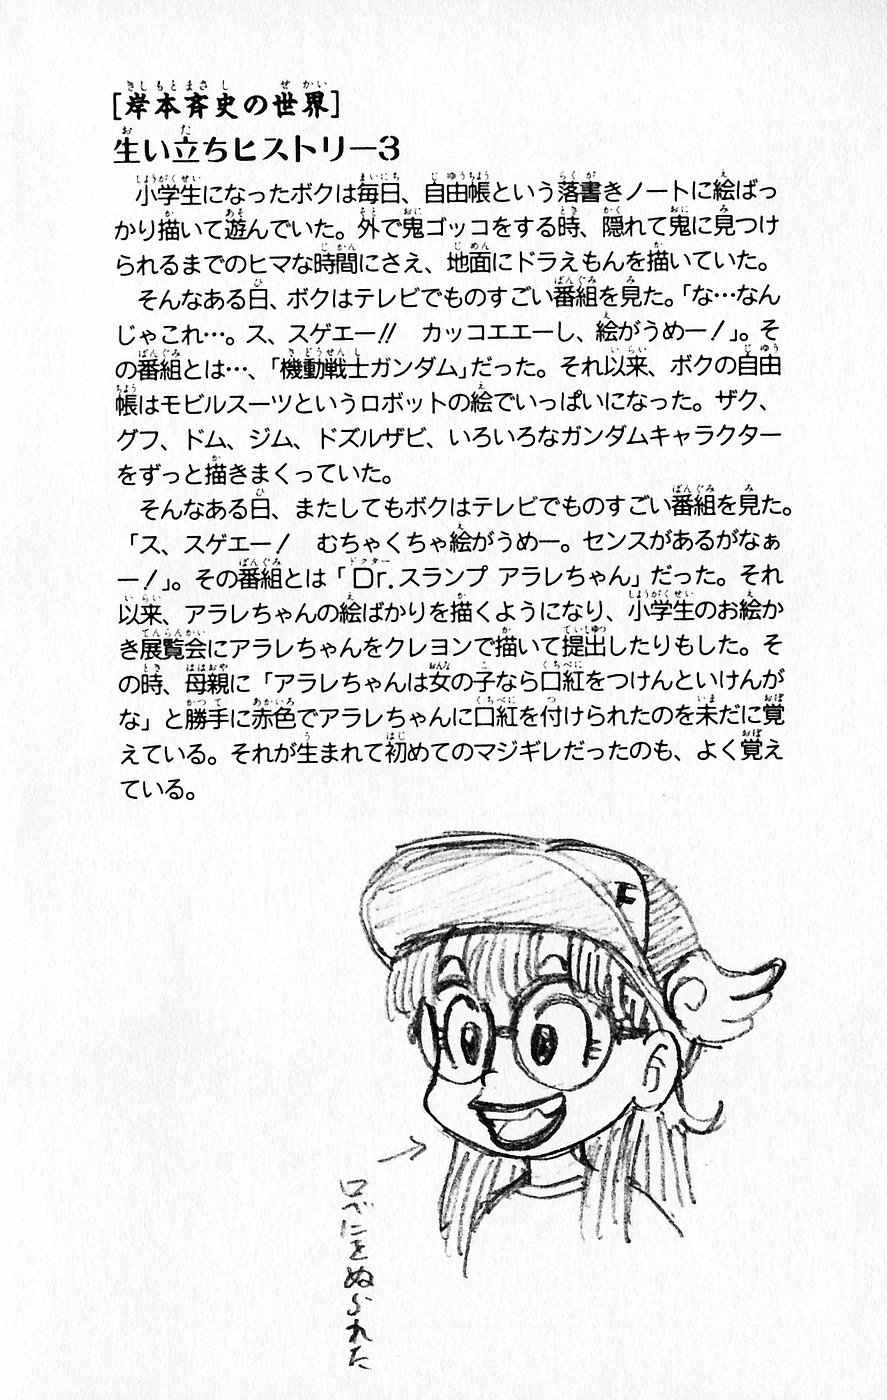 [岸本斉史の世界]
生い立ちヒストリー3
小学生になったボクは毎日、自由帳という落書きノートに絵ばっ
かり描いて遊んでいた。外で鬼ゴッコをする時、隠れて鬼に見つけ
られるまでのヒマな時間にさえ、地面にドラえもんを描いていた。
そんなある日、ボクはテレビでものすごい番組を見た。「な…なん
じゃこれ…。ス、スゲエー!! カッコエエーし、絵がうめー!」。そ
の番組とは…、「機動戦士ガンダム」だった。それ以来、ボクの自由
帳はモビルスーツというロボットの絵でいっぱいになった。ザク、
グフ、ドム、ジム、ドズルザビ、いろいろなガンダムキャラクター
をずっと描きまくっていた。
そんなある日、またしてもボクはテレビでものすごい番組を見た。
「ス、スゲエー! むちゃくちゃ絵がうめー。センスがあるがなぁ
ー!」。その番組とは「Dr.スランプ アラレちゃん」だった。それ
以来、アラレちゃんの絵ばかりを描くようになり、小学生のお絵か
き展覧会にアラレちゃんをクレヨンで描いて提出したりもした。そ
の時、母親に「アラレちゃんは女の子なら口紅をつけんといけんが
な」と勝手に赤色でアラレちゃんに口紅を付けられたのを未だに覚
えている。それが生まれて初めてのマジギレだったのも、よく覚え
ている。
F
口べにをぬられた